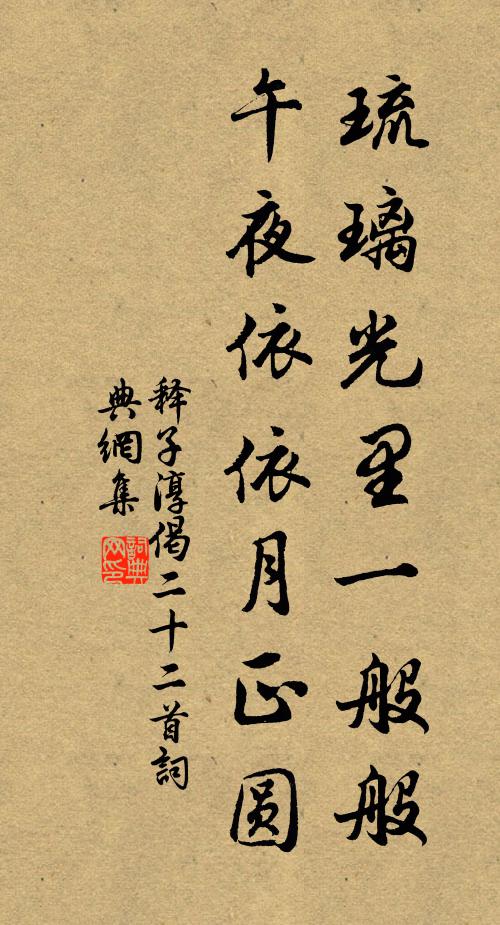 琉璃光里一般般
午夜依依月正圆
释子淳偈二十二首詞
典網集
詞典网印